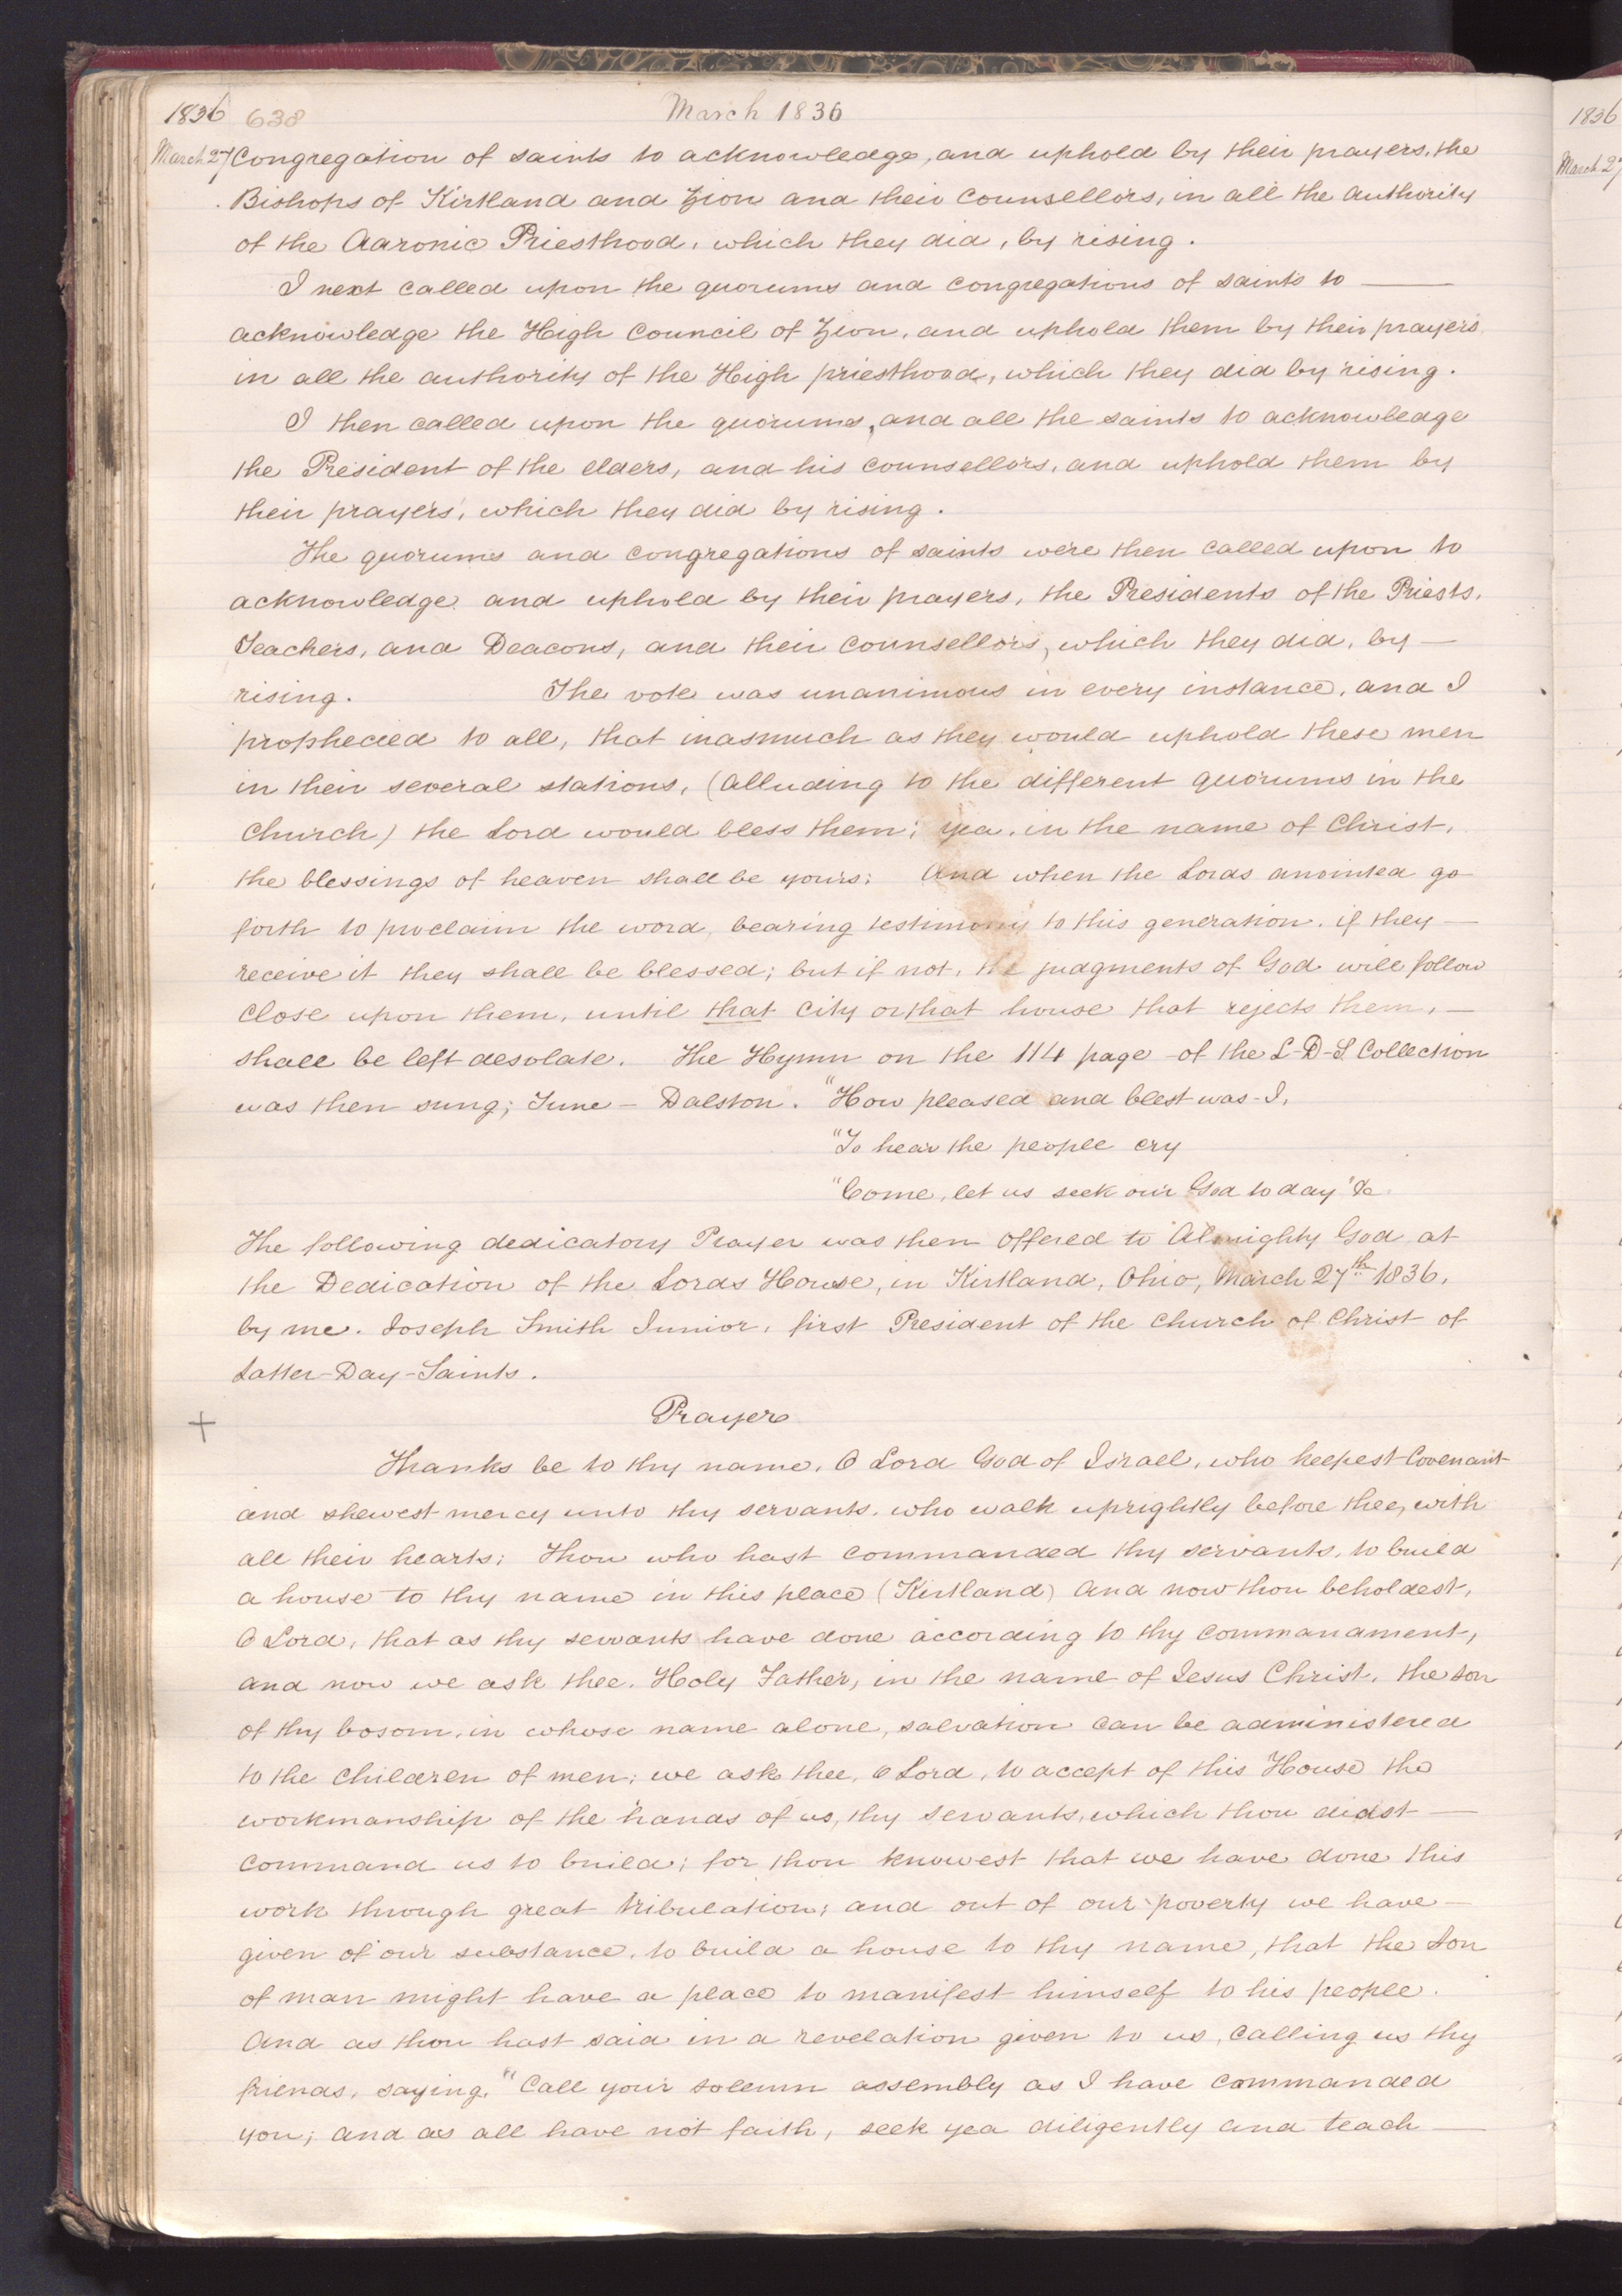 1836 638 March 1836
March 27 Congregation of saints to acknowledge, and uphold by their prayers, the
Bishops of Kirtland and Zion and their Counsellors, in all the authority
of the Aaronic Priesthood, which they did, by rising.
I next called upon the quorums and congregations of saints to —
acknowledge the High Council of Zion, and uphold them by their prayers
in all the authority of the High priesthood, which they did by rising.
I then called upon the quorums, and all the saints to acknowledge
the President of the elders, and his counsellors, and uphold them by
their prayers, which they did by rising.
The quorums and congregations of saints were then called upon to
acknowledge and uphold by their prayers, the Presidents of the Priests,
Teachers, and Deacons, and their counsellors, which they did, by —
rising. The vote was unanimous in every instance, and I
prophecied to all, that inasmuch as they would uphold these men
in their several stations, (alluding to the different quorums in the
Church) the Lord would bless them; yea, in the name of Christ,
the blessings of heaven shall be yours: And when the Lords anointed go
forth to proclaim the word, bearing testimony to this generation, if they —
receive it they shall be blessed; but if not, the judgments of God will follow
close upon them, until that city or that house that rejects them, —
shall be left desolate. The Hymn on the 114 page of the L-D-S Collection
was then sung; Tune — Dalston. "How pleased and blest was I,
"To hear the people cry
"Come, let us seek our God to day" &c.
The following dedicatory Prayer was then offered to Almighty God at
the Dedication of the Lords House, in Kirtland, Ohio, March 27th 1836,
by me. Joseph Smith Junior, first President of the Church of Christ of
Latter-Day-Saints.
+ Prayer
Thanks be to thy name, O Lord God of Israel, who keepest Covenant
and shewest mercy unto thy servants, who walk uprightly before thee, with
all their hearts; Thou who hast commanded thy servants, to build
a house to thy name in this place (Kirtland) And now thou beholdest,
O Lord, that as thy servants have done according to thy commandment,
and now we ask thee, Holy Father, in the name of Jesus Christ, the Son
of thy bosom, in whose name alone, salvation can be administered
to the children of men; we ask thee, O Lord, to accept of this House the
workmanship of the hands of us, thy servants, which thou didst —
command us to build; for thou knowest that we have done this
work through great tribulation; and out of our poverty we have —
given of our substance, to build a house to thy name, that the Son
of man might have a place to manifest himself to his people.
And as thou hast said in a revelation given to us, calling us thy
friends, saying, "Call your solemn assembly as I have commanded
you; and as all have not faith, seek yea diligently and teach —
1836
March 27